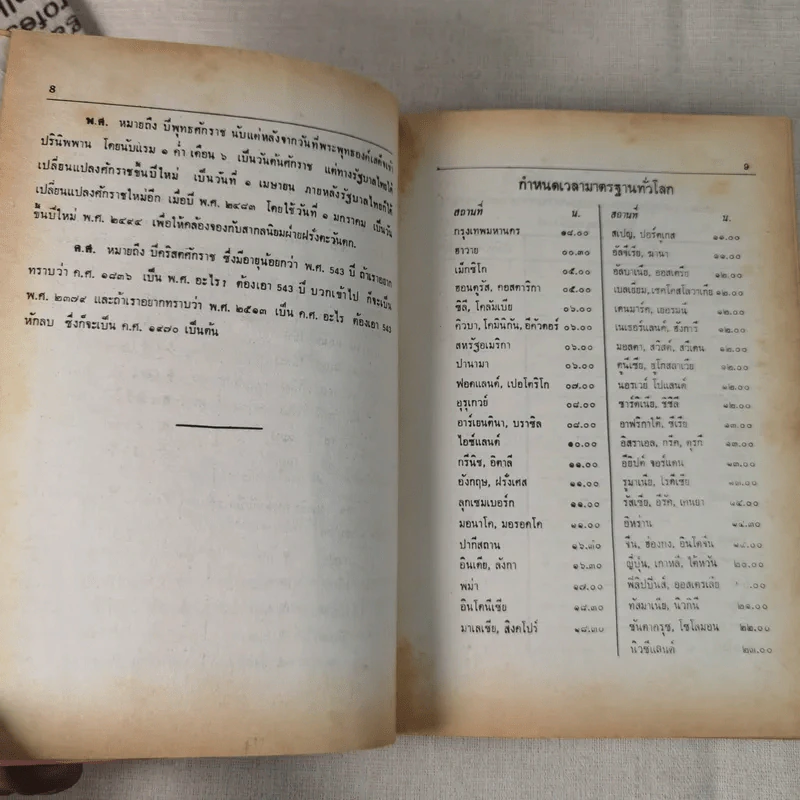 8
พ.ศ. หมายถึง ปีพุทธศักราช นับแต่หลังจากวันที่พระพุทธองค์เสด็จเข้า
ปรินิพพาน โดยนับแรม ๑ ค่ำ เดือน ๖ เป็นวันต้นศักราช แต่ทางรัฐบาลไทยได้
เปลี่ยนแปลงศักราชขึ้นปีใหม่ เป็นวันที่ ๑ เมษายน ภายหลังรัฐบาลไทยก็ได้
เปลี่ยนแปลงศักราชใหม่อีก เมื่อปี พ.ศ. ๒๔๘๓ โดยใช้วันที่ ๑ มกราคม เป็นวัน
ขึ้นปีใหม่ พ.ศ. ๒๔๘๔ เพื่อให้คล้องจองกับสากลนิยมฝ่ายฝรั่งตะวันตก
ค.ศ. หมายถึง ปีคริสตศักราช ซึ่งมีอายุน้อยกว่า พ.ศ. 543 ปี ถ้าเราอยาก
ทราบว่า ค.ศ. ๑๘๓๖ เป็น พ.ศ. อะไร? ต้องเอา 543 ปี บวกเข้าไป ก็จะเป็น
พ.ศ. ๒๓๗๙ และถ้าเราอยากทราบว่า พ.ศ. ๒๕๑๓ เป็น ค.ศ. อะไร ต้องเอา 543
หักลบ ซึ่งก็จะเป็น ค.ศ. ๑๙๗๐ เป็นต้น
9
กำหนดเวลามาตรฐานทั่วโลก
สถานที่ น.
กรุงเทพมหานคร ๑๘.๐๐
ฮาวาย ๐๐.๓๐
เม็กซิโก ๐๕.๐๐
ฮอนดูรัส, คอสตาริกา ๐๕.๐๐
ชิลี, โคลัมเบีย ๐๖.๐๐
คิวบา, โดมินิกัน, อีคัวดอร์ ๐๖.๐๐
สหรัฐอเมริกา ๐๖.๐๐
ปานามา ๐๖.๐๐
ฟอคแลนด์, เปอโตริโก ๐๗.๐๐
อุรุเกวย์ ๐๘.๐๐
อาร์เยนตินา, บราซิล ๐๘.๐๐
ไอซ์แลนด์ ๑๐.๐๐
กรีนิช, อิตาลี ๑๑.๐๐
อังกฤษ, ฝรั่งเศส ๑๑.๐๐
ลุกเซมเบอร์ก ๑๑.๐๐
มอนาโค, มอรอคโค ๑๑.๐๐
ปากีสถาน ๑๖.๓๐
อินเดีย, ลังกา ๑๖.๓๐
พม่า ๑๗.๐๐
อินโดนีเซีย ๑๘.๓๐
มาเลเซีย, สิงคโปร์ ๑๘.๓๐
สถานที่ น.
สเปญ, ปอร์ตุเกส ๑๑.๐๐
อัลจีเรีย, ฆานา ๑๑.๐๐
อัลบาเนีย, ออสเตรีย ๑๒.๐๐
เบลเยี่ยม, เชคโคสโลวาเกีย ๑๒.๐๐
เดนมาร์ค, เยอรมนี ๑๒.๐๐
เนเธอร์แลนด์, ฮังการี ๑๒.๐๐
มอลตา, สวิสต์, สวีเดน ๑๒.๐๐
ตูนีเซีย, ยูโกสลาเวีย ๑๒.๐๐
นอรเวย์ โปแลนด์ ๑๒.๐๐
ซาร์ดิเนีย, ซิซิลี ๑๒.๐๐
อาฟริกาใต้, ซีเรีย ๑๓.๐๐
อิสราเอล, กรีค, ตุรกี ๑๓.๐๐
อียิปต์ จอร์แดน ๑๓.๐๐
รูมาเนีย, โรดีเซีย ๑๓.๐๐
รัสเซีย, อีรัค, เคนยา ๑๔.๐๐
อิหร่าน ๑๔.๓๐
จีน, ฮ่องกง, อินโดจีน ๑๙.๐๐
ญี่ปุ่น, เกาหลี, ไต้หวัน ๒๐.๐๐
ฟิลิปปินส์, ออสเตรเลีย
ทัสมาเนีย, นิวกินี ๒๑.๐๐
ซันตาครูซ, โซโลมอน ๒๒.๐๐
นิวซีแลนด์ ๒๓.๐๐